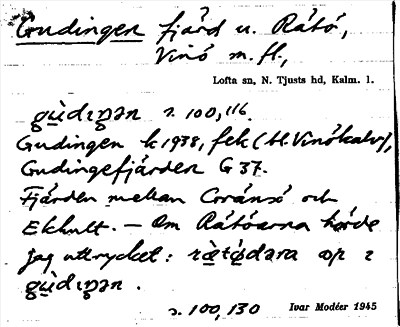 Gudingen fjärd u. Rätö,
Vinö m. fl.,
Lofta sn, N. Tjusts hd, Kalm. l.
gùdɩŋən s. 100, 116.
Gudingen k 1938, fek (bl. Vinökalv),
Gudingefjärden G 37.
Fjärden mellan Coränsö och
Ekhult. — Om Rätöarna hörde
jag uttrycket: 
gùdɩŋən.
s. 100, 130 Ivar Modéer 1945